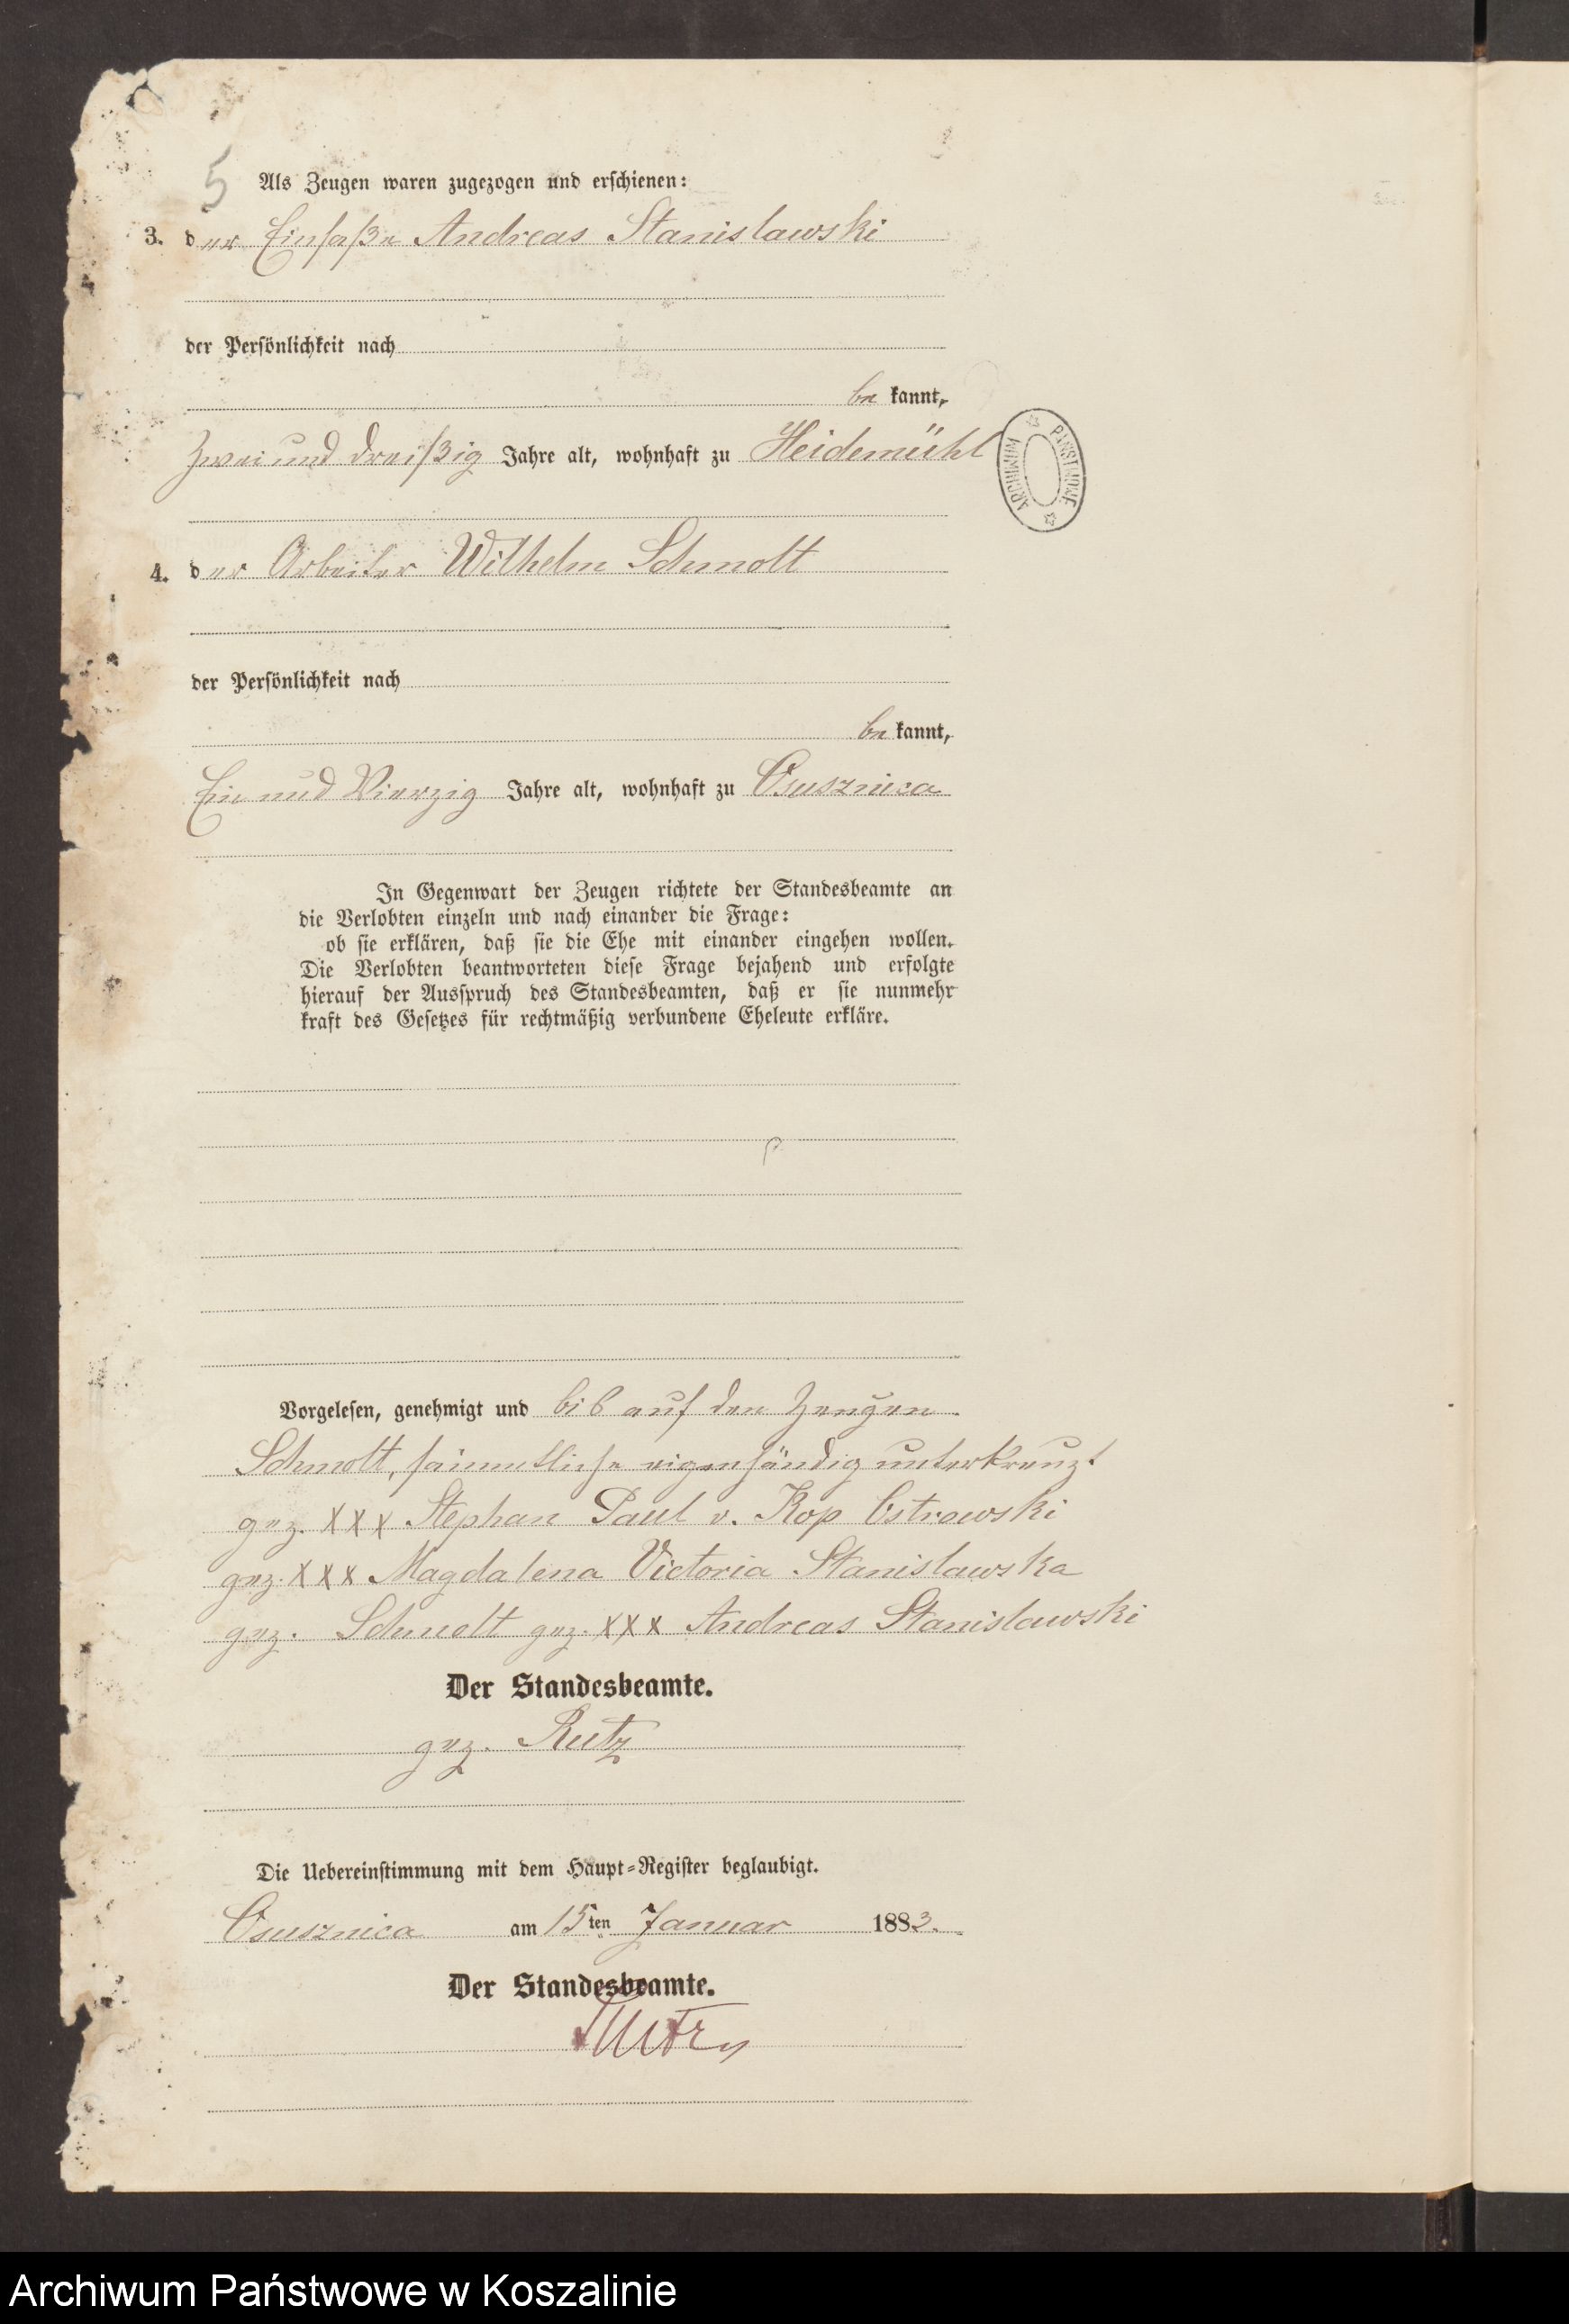 5
Als Zeugen waren zugezogen und erschienen:
3. der Einsaße Andreas Stanislawski
der Persönlichkeit nach
be kannt,
Zwei und dreißig Jahre alt, wohnhaft zu Heidemühl
ARCHIWUM PAŃSTWOWE
4. der Arbeiter Wilhelm Schmolt
der Persönlichkeit nach
be kannt,
Ein und Vierzig Jahre alt, wohnhaft zu Osusznica
In Gegenwart der Zeugen richtete der Standesbeamte an
die Verlobten einzeln und nach einander die Frage:
ob sie erklären, daß sie die Ehe mit einander eingehen wollen.
Die Verlobten beantworteten diese Frage bejahend und erfolgte
hierauf der Ausspruch des Standesbeamten, daß er sie nunmehr
kraft des Gesetzes für rechtmäßig verbundene Eheleute erkläre.
Vorgelesen, genehmigt und bis auf den Zeugen
Schmolt, sämmtliche eigenhändig unterkreuzt
gez. XXX Stephan Paul v. Kop Ostrowski
gez. XXX Magdalena Victoria Stanislawska
gez. Schmolt gez. XXX Andreas Stanislawski
Der Standesbeamte.
gez. Rutz
Die Uebereinstimmung mit dem Haupt-Register beglaubigt.
Osusznica am 15ten Januar 1883.
Der Standesbeamte.
Rutz
Archiwum Państwowe w Koszalinie